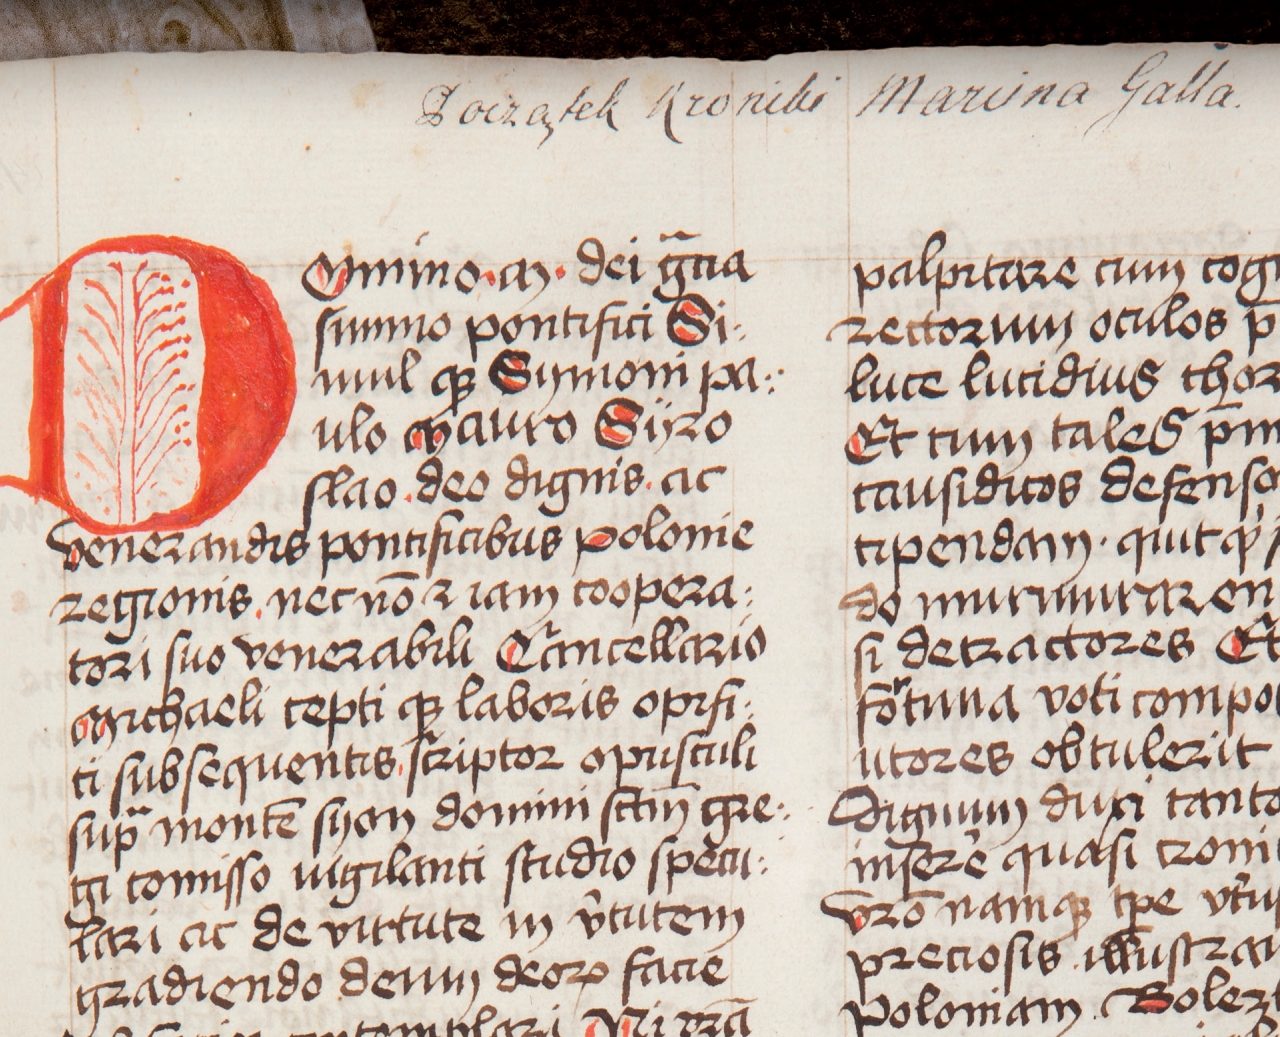 Początek Kroniki Marcina Galla.
Domino .m. dei gr̄cia
summo pontifici Si-
mul qꝫ Symoni pa-
ulo Mauro Syro
slao deo dignis. ac
venerandis pontificibus polonie
regionis. nec nō ⁊ iam coopera-
tori suo venerabili Cancellario
Michaeli cepti qꝫ laboris opifi-
ci subsequentis scriptor opusculi
supᵃ montē syon domini sctm̄ gre-
gi comisso uigilanti studio specu-
lari ac de virtute in v̄tutem
gradiendo deum deoꝝ facie
contemplari
palpitare cum
rectorum oculos
luce lucidius
Et cum tales
causidicos
cipendam.
do
si detractores Et
fortuna voti
utores obtulerit
Dignum duxi
inserē quasi
vr̄o namqꝫ tp̄e
preciosis. illustra
Poloniam.